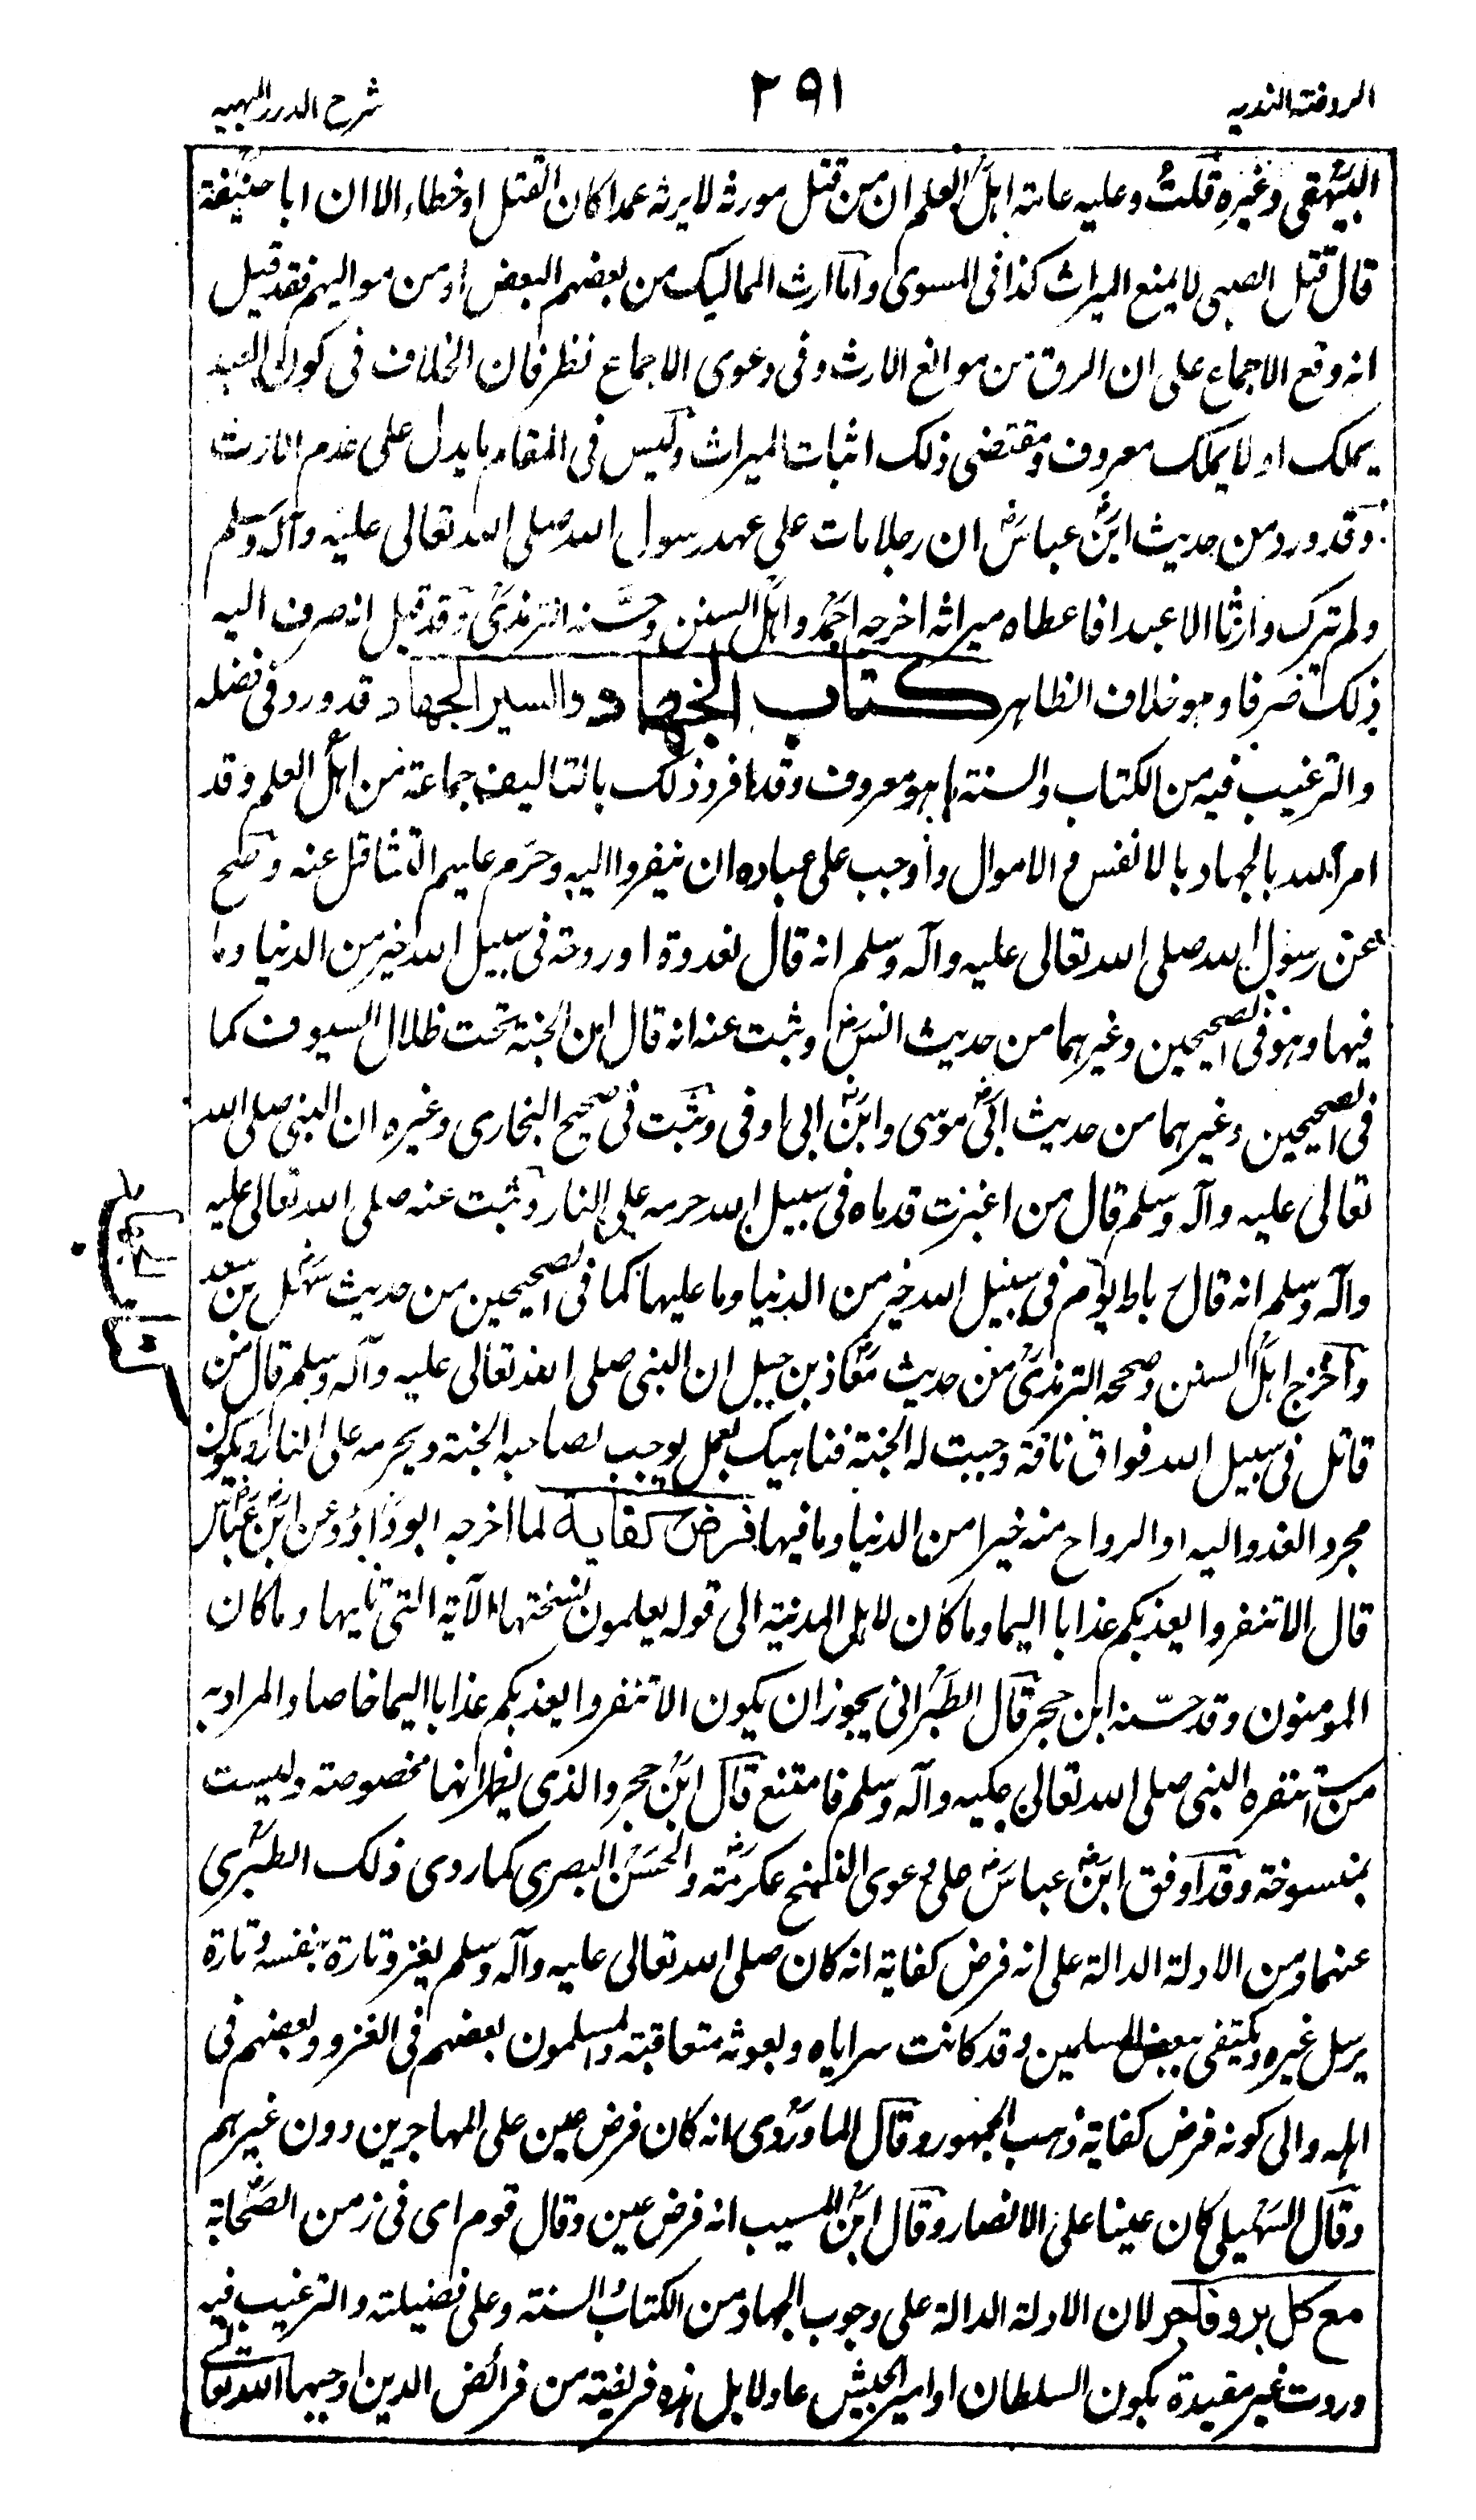 الروضة الندیه
٢٩١
شرح الدرر البهیه
البیهقی وغیره قلت وعلیه عامة اهل العلم ان من قتل مورثه لا یرثه عمدا کان القتل او خطاء الا ان ابا حنیفة
قال قتل الصبی لا یمنع المیراث کذا فی المسوی واما ارث الممالیک من بعضهم البعض او من موالیهم فقد قیل
انه وقع الاجماع علی ان الرق من موانع الارث وفی دعوی الاجماع نظر فان الخلاف فی کون العبد
یملک او لا یملک معروف ومقتضی ذلک اثبات المیراث ولیس فی المقام ما یدل علی عدم الارث
وقد ورد من حدیث ابن عباس ان رجلا مات علی عهد رسول الله صلی الله تعالی علیه وآله وسلم
ولم یترک وارثا الا عبدا فاعطاه میراثه اخرجه احمد واهل السنن وحسنه الترمذی وقد قیل انه صرف الیه
ذلک صرفا وهو خلاف الظاهر کتاب الجهاد والسیر الجهاد قد ورد فی فضله
والترغیب فیه من الکتاب والسنة ما هو معروف وقد افرد ذلک بالتالیف جماعة من اهل العلم وقد
امر الله بالجهاد بالانفس والاموال واوجب علی عباده ان ینفروا الیه وحرم علیهم التثاقل عنه وصح
عن رسول الله صلی الله تعالی علیه وآله وسلم انه قال لغدوة او روحة فی سبیل الله خیر من الدنیا وما
فیها وهو فی الصحیحین وغیرهما من حدیث انس وثبت عنه انه قال ان الجنة تحت ظلال السیوف کما
فی الصحیحین وغیرهما من حدیث ابی موسی وابن ابی اوفی وثبت فی صحیح البخاری وغیره ان النبی صلی الله
تعالی علیه وآله وسلم قال من اغبرت قدماه فی سبیل الله حرمه علی النار وثبت عنه صلی الله تعالی علیه
وآله وسلم انه قال رباط یوم فی سبیل الله خیر من الدنیا وما علیها کما فی الصحیحین من حدیث سهل بن سعد
واخرج اهل السنن وصححه الترمذی من حدیث معاذ بن جبل ان النبی صلی الله تعالی علیه وآله وسلم قال من
قاتل فی سبیل الله فواق ناقة وجبت له الجنة فناهیک بعمل یوجب لصاحبه الجنة ویحرمه علی النار ویکون
مجرد الغدو الیه او الرواح منه خیرا من الدنیا وما فیها فرض کفایة لما اخرجه ابو داؤد عن ابن عباس
قال الا تنفروا یعذبکم عذابا الیما وما کان لاهل المدینة الی قوله یعلمون نسختها الآیة التی تلیها وما کان
المومنون وقد حسنه ابن حجر قال الطبرانی یجوز ان یکون الا تنفروا یعذبکم عذابا الیما خاصا والمراد به
من استنفره النبی صلی الله تعالی علیه وآله وسلم فامتنع قال ابن حجر والذی یظهر انها مخصوصة ولیست
بمنسوخة وقد اوفق ابن عباس علی دعوی النسخ عکرمة والحسن البصری کما روی ذلک الطبری
عنهما ومن الادلة الدالة علی انه فرض کفایة انه کان صلی الله تعالی علیه وآله وسلم یغزو تارة بنفسه وتارة
یرسل غیره ویکتفی ببعض المسلمین وقد کانت سرایاه وبعوثه متعاقبة والمسلمون بعضهم فی الغزو وبعضهم فی
اهله والی کونه فرض کفایة ذهب الجمهور وقال الماوردی انه کان فرض عین علی المهاجرین دون غیرهم
وقال السهیلی کان عینا علی الانصار وقال ابن المسیب انه فرض عین وقال قوم ای فی زمن الصحابة
مع کل بر وفاجر لان الادلة الدالة علی وجوب الجهاد من الکتاب والسنة وعلی فضیلته والترغیب فیه
وردت غیر مقیدة بکون السلطان او امیر الجیش عادلا بل هذه فریضة من فرائض الدین اوجبها الله تعالی